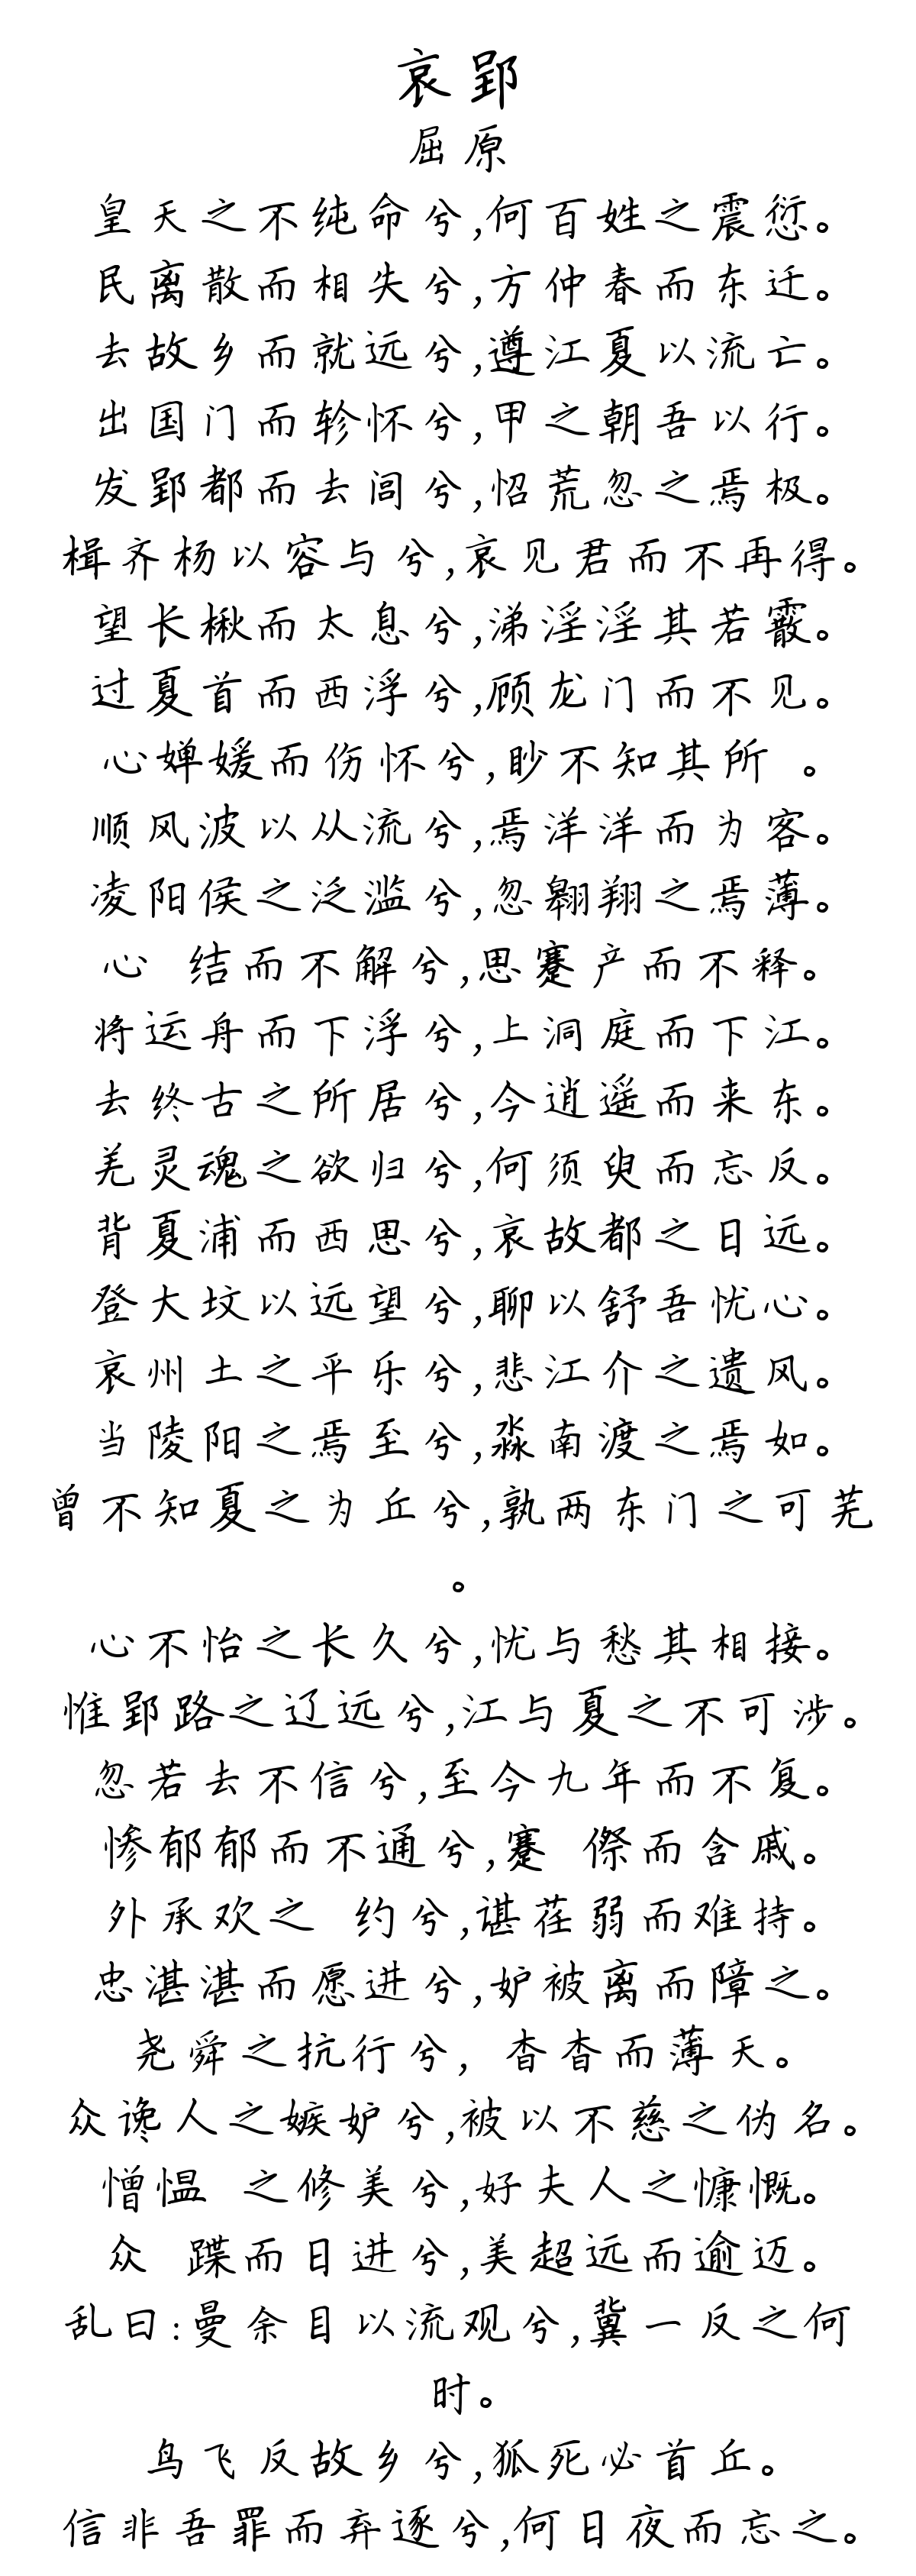 哀郢
屈原
皇天之不纯命兮,何百姓之震愆。
民离散而相失兮,方仲春而东迁。
去故乡而就远兮,遵江夏以流亡。
出国门而轸怀兮,甲之朝吾以行。
发郢都而去闾兮,怊荒忽之焉极。
楫齐杨以容与兮,哀见君而不再得。
望长楸而太息兮,涕淫淫其若霰。
过夏首而西浮兮,顾龙门而不见。
心婵媛而伤怀兮,眇不知其所 。
顺风波以从流兮,焉洋洋而为客。
凌阳侯之泛滥兮,忽翱翔之焉薄。
心 结而不解兮,思蹇产而不释。
将运舟而下浮兮,上洞庭而下江。
去终古之所居兮,今逍遥而来东。
羌灵魂之欲归兮,何须臾而忘反。
背夏浦而西思兮,哀故都之日远。
登大坟以远望兮,聊以舒吾忧心。
哀州土之平乐兮,悲江介之遗风。
当陵阳之焉至兮,淼南渡之焉如。
曾不知夏之为丘兮,孰两东门之可芜
。
心不怡之长久兮,忧与愁其相接。
惟郢路之辽远兮,江与夏之不可涉。
忽若去不信兮,至今九年而不复。
惨郁郁而不通兮,蹇 傺而含戚。
外承欢之 约兮,谌荏弱而难持。
忠湛湛而愿进兮,妒被离而障之。
尧舜之抗行兮,杳杳而薄天。
众谗人之嫉妒兮,被以不慈之伪名。
憎愠 之修美兮,好夫人之慷慨。
众 蹀而日进兮,美超远而逾迈。
乱曰:曼余目以流观兮,冀一反之何
时。
鸟飞反故乡兮,狐死必首丘。
信非吾罪而弃逐兮,何日夜而忘之。